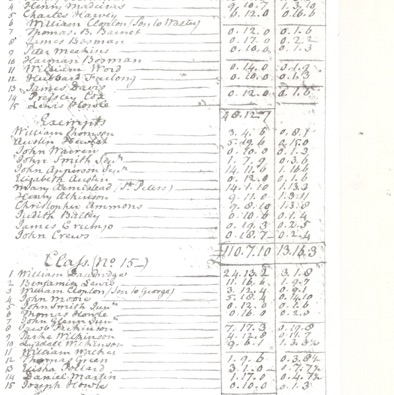 4 Henry Madeiras 9.10.7 1.3.10
5 Charles Harvey 6.12.0 0.16.6
6 William Clopton (Son to Walter)
7 Thomas B. Barnet 0.12.0 0.1.6
8 James Bosman 0.17.0 0.2.2
9 Peter Meekins 0.10.0 0.1.3
10 Harman Bosman
11 William Word 0.14.0 0.1.9
12 Hubbard Furlong 0.10.0 0.1.3
13 James Davis
14 Pressley Cox 0.12.0 0.1.6
15 Lewis Howle
48.12.7
Exempts
William Thomson 3.4.6 0.8.1
Austin 5.19.6
John Warren 0.10.0 0.1.3
John Smith 1.7.9 0.3.6
John Apperson 14.11.0 1.16.4
Elizabeth Austin 0.12.0 0.1.6
Mary Armistead (St Peters) 14.1.10
Henry Atkinson 9.11.0 1.3.11
Christopher Ammons 9.8.10
Judith Bailey 0.10.6 0.1.4
James Crump 0.19.3 0.2.5
John Crews 0.18.7 0.2.4
110.7.10 13.16.3
Class (No 15)
1 William 24.13.2 3.1.8
2 Benjamin Lewis 11.16.6 1.9.7
3 William Clopton (Son to George) 3.12.4
4 John Moore 5.18.4 0.14.10
5 John Smith Junr 0.12.0 0.1.6
6 Thomas Howle 0.16.0 0.2.0
7 John Glenn Junr
8 Parkinson 7.17.3 0.19.8
9 Wilkinson 4.12.0
10 Lyddall Wilkinson 9.6.1
11 William
12 Thomas Green 1.9.6
13 Elisha Pollard 3.1.0
14 Daniel Martin 1.17.0
15 Joseph Howle 0.10.0 0.1.3